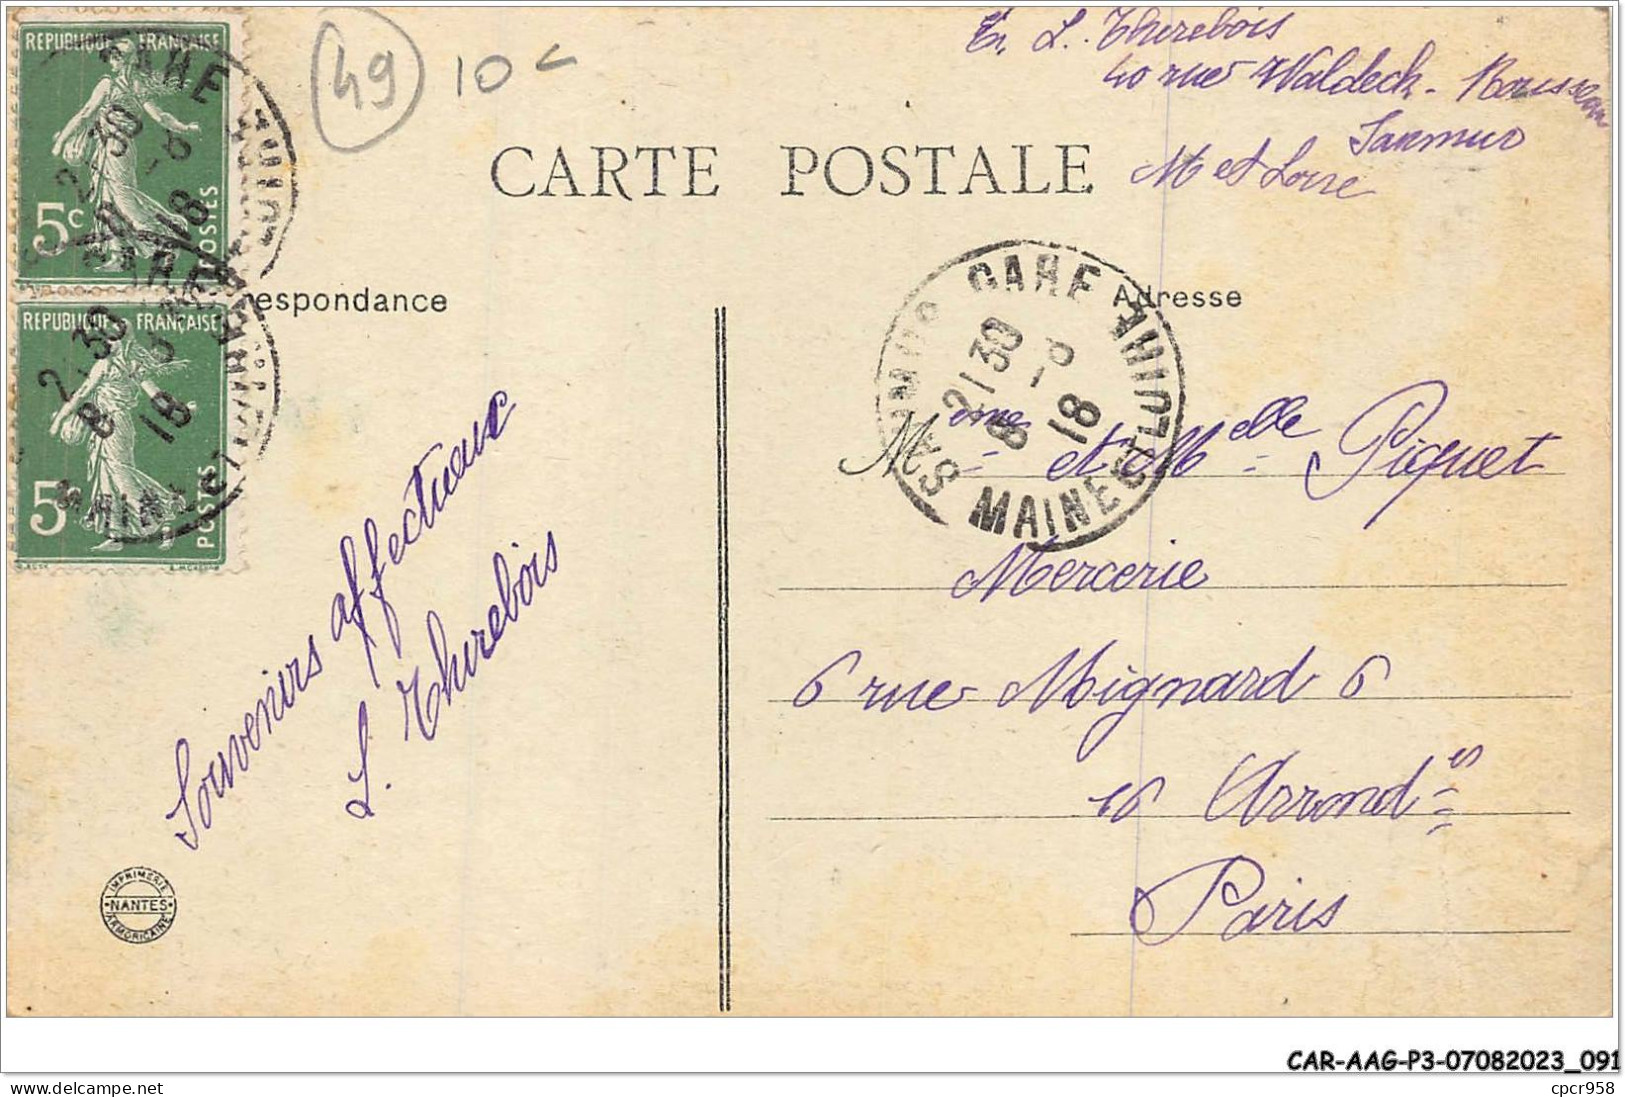 REPUBLIQUE FRANÇAISE
5c
POSTES
REPUBLIQUE FRANÇAISE
5c
POSTES
49
10c
E. L. Thurebois
40 rue Waldeck-Rousseau
Saumur
M et Loire
CARTE POSTALE
espondance
Adresse
SAUMUR GARE
21 30
8 - 8
18
MAINE ET LOIRE
Souvenirs affectueux
L. Thurebois
Mme et Melle Piquet
Mercerie
6 rue Mignard 6
16 Arrondt
Paris
IMPRIMERIE
NANTES
ARMORICAINE
CAR-AAG-P3-07082023_091
www.delcampe.net
cpcr958